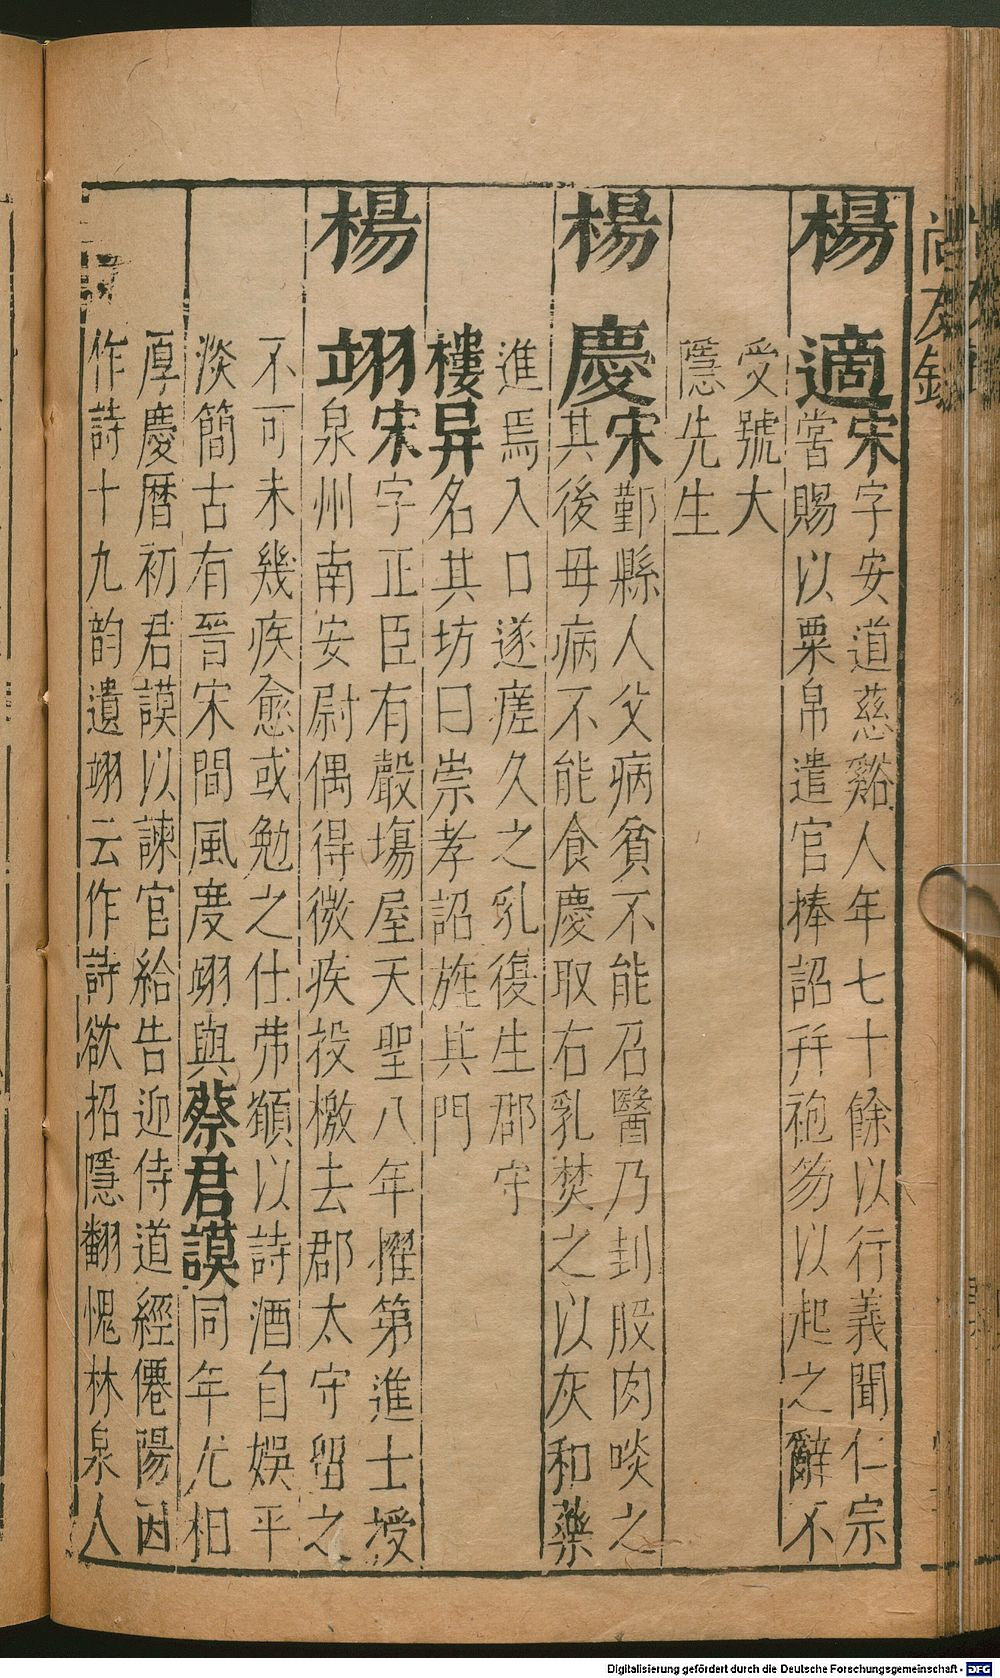 尚友錄
楊適
宋字安道慈谿人年七十餘以行義聞仁宗
嘗賜以粟帛遣官捧詔幷袍笏以起之辭不
受號大
隱先生
楊慶
宋鄞縣人父病貧不能召醫乃刲股肉啖之
其後母病不能食慶取右乳焚之以灰和藥
進焉入口遂瘥久之乳復生郡守
樓异名其坊曰崇孝詔旌其門
楊翊
宋字正臣有聲塲屋天聖八年擢第進士授
泉州南安尉偶得微疾投檄去郡太守畱之
不可未幾疾愈或勉之仕弗顧以詩酒自娛平
淡簡古有晉宋間風度翊與蔡君謨同年尤相
厚慶曆初君謨以諫官給告迎侍道經僊陽因
作詩十九韵遺翊云作詩欲招隱翻愧林泉人
Digitalisierung gefördert durch die Deutsche Forschungsgemeinschaft - DFG